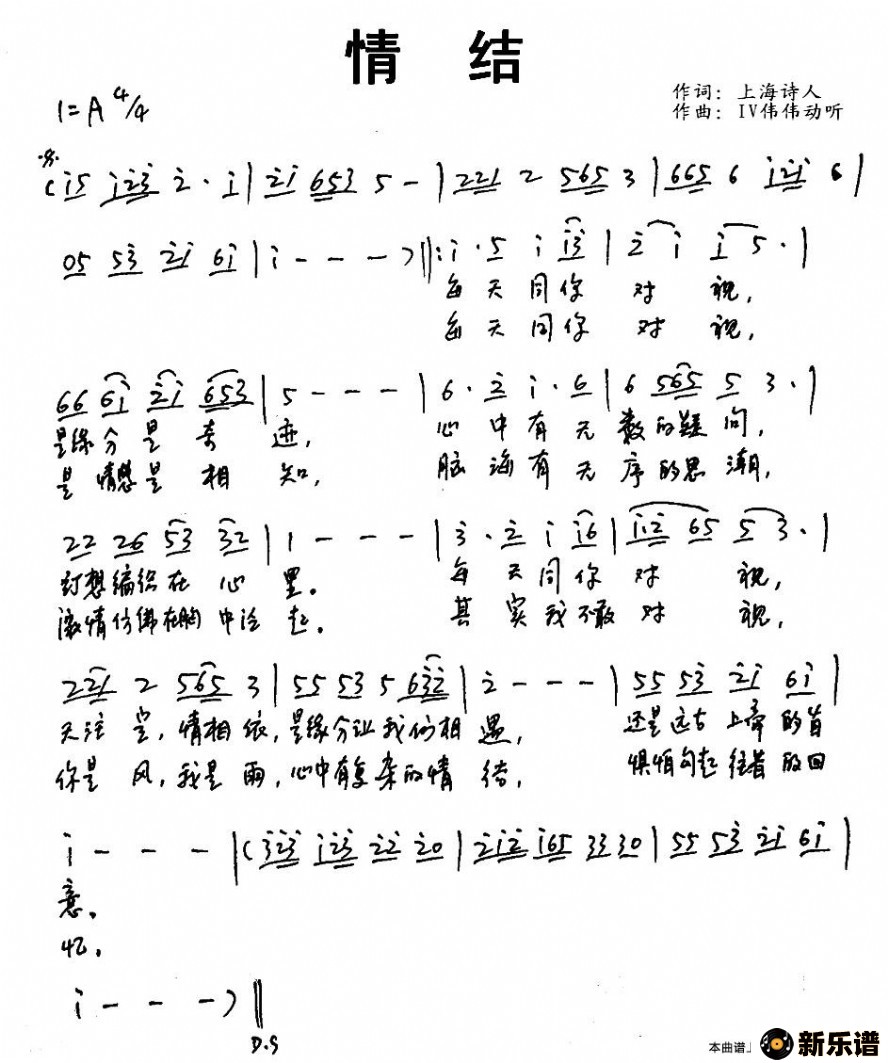 情 结
作词: 上海诗人
1=A 4/4
作曲: IV伟伟动听
(i5 i23 2· i | 2i 653 5 - | 221 2 565 3 | 665 6 i2i 6 |
05 53 2i 6i | i - - - ) ‖: i·5 i i3 | 2 i i 5· |
每天同你 对 视,
每天同你 对 视,
66 6i 2i 653 | 5 - - - | 6·2 i·6 | 6 565 5 3· |
是缘分是 奇 迹, 心中有无数的疑问,
是情愁是 相 知, 脑海有无序的思潮,
22 26 53 32 | 1 - - - | 3·2 i i6 | i2 65 5 3· |
幻想编织在 心 里。 每天同你 对 视,
激情仿佛在胸中泛 起。 其实我不敢对 视,
221 2 565 3 | 55 53 5 632 | 2 - - - | 55 53 2i 6i |
天注定, 情相依, 是缘分让我们相 遇, 还是远古上帝的旨
你是 风, 我是 雨, 心中有复杂的情 结, 惧怕勾起往昔的回
i - - - | (323 i23 22 20 | 2i2 i65 33 30 | 55 53 2i 6i |
意。
忆。
i - - - ) ‖
D.S
本曲谱」 新乐谱